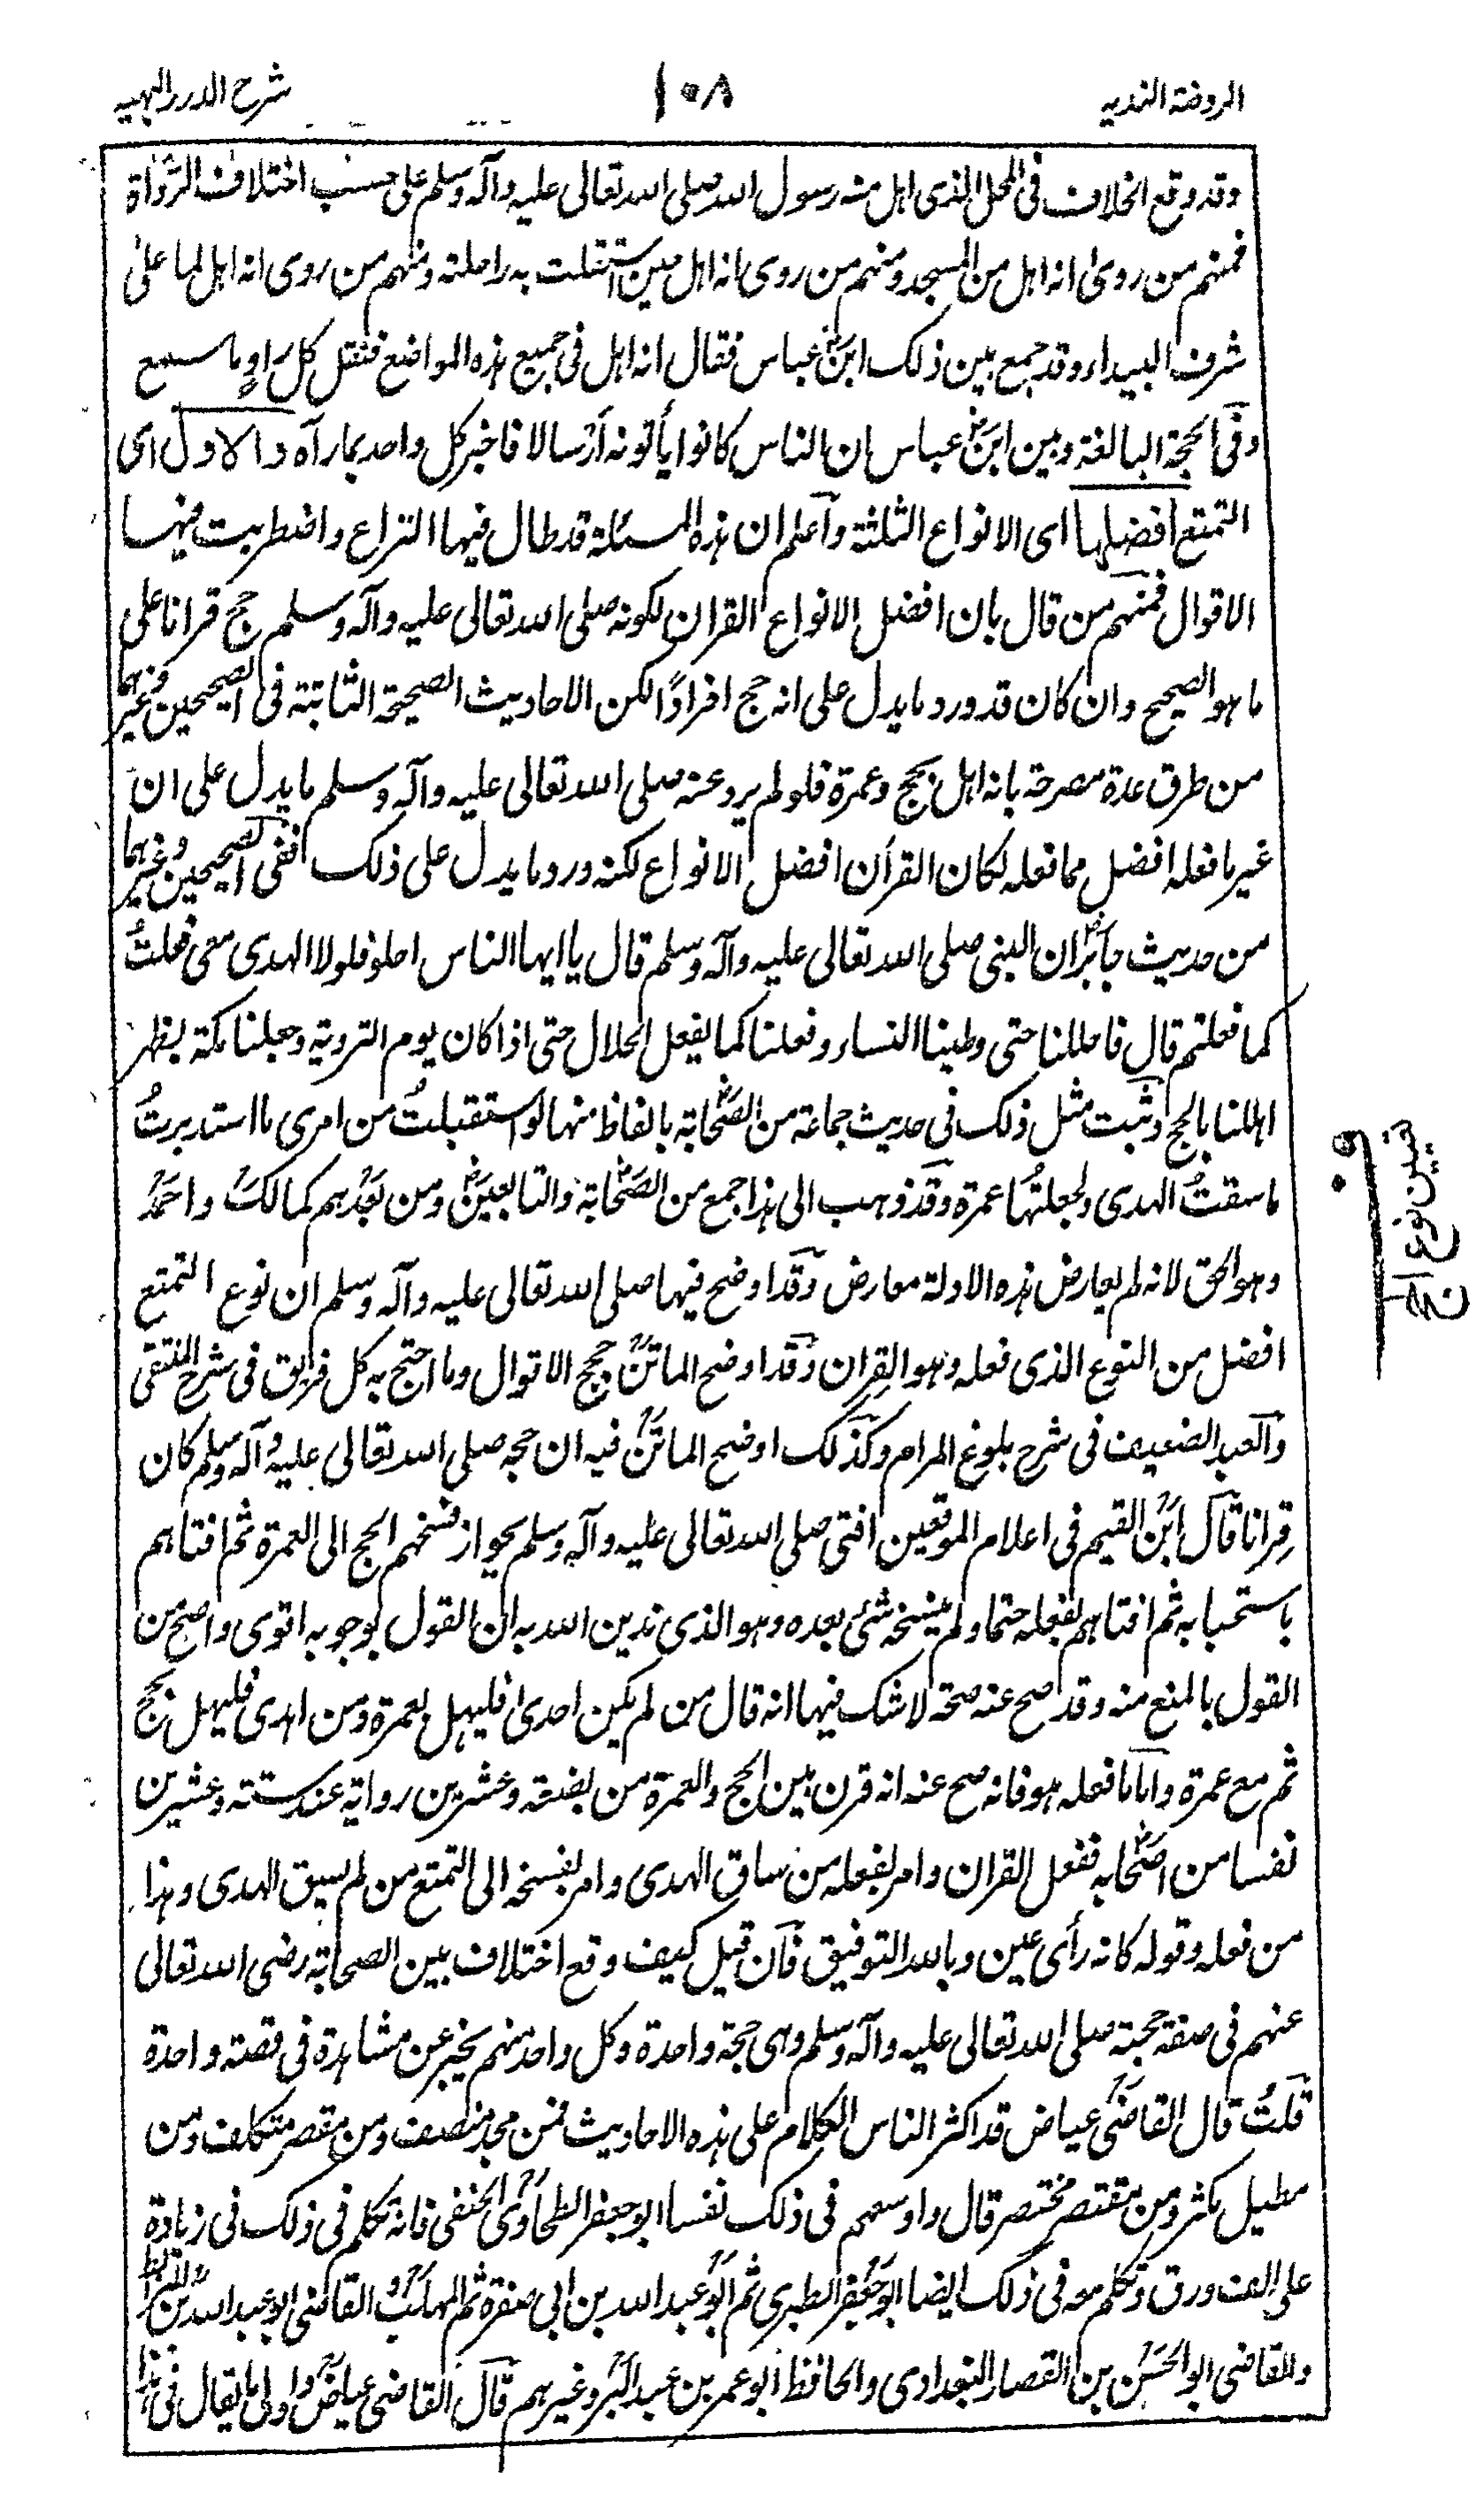 الروضة الندية
١٠٨
شرح الدرر البهية
وقد وقع الخلاف فى المحل الذى اهل منه رسول الله صلى الله تعالى عليه وآله وسلم على حسب اختلاف الرواة
فمنهم من روى انه اهل من المسجد ومنهم من روى انه اهل حين استقلت به راحلته ومنهم من روى انه اهل لما على
شرف البيداء وقد جمع بين ذلك ابن عباس فقال انه اهل فى جميع هذه المواضع فنقل كل راوٍ ما سمع
وفى الحجة البالغة وبين ابن عباس ان الناس كانوا يأتونه أرسالا فاخبر كل واحد بما رآه والاول اى
التمتع افضلها اى الانواع الثلثة وآعلم ان هذه المسئلة قد طال فيها النزاع واضطربت فيها
الاقوال فمنهم من قال بان افضل الانواع القران لكونه صلى الله تعالى عليه وآله وسلم حج قرانا على
ما هو الصحيح وان كان قد ورد ما يدل على انه حج افرادًا لكن الاحاديث الصحيحة الثابتة فى الصحيحين وغيرهما
من طرق عدة مصرحة بانه اهل بحج وعمرة فلو لم يرد عنه صلى الله تعالى عليه وآله وسلم ما يدل على ان
غير ما فعله افضل مما فعله لكان القرأن افضل الانواع لكنه ورد ما يدل على ذلك ففى الصحيحين وغيرهما
من حديث جابر ان النبى صلى الله تعالى عليه وآله وسلم قال يا ايها الناس احلو فلولا الهدى معى فعلتُ
كما فعلتم قال فاحللنا حتى وطينا النساء وفعلنا كما يفعل الحلال حتى اذا كان يوم التروية وجعلنا مكة بظهر
اهللنا بالحج وثبت مثل ذلك فى حديث جماعة من الصحابة بالفاظ منها لو استقبلتُ من امرى ما استدبرتُ
ما سقتُ الهدى ولجعلتها عمرة وقد ذهب الى هذا جمع من الصحابة والتابعين ومن بعدهم كمالك واحمد
وهو الحق لانه لم يعارض هذه الادلة معارض وقد اوضح فيها صلى الله تعالى عليه وآله وسلم ان نوع التمتع
افضل من النوع الذى فعله وهو القِران وقد اوضح الماتن حجج الاقوال وما احتج به كل فريق فى شرح المنتقى
وآلعبد الضعيف فى شرح بلوغ المرام وكذلك اوضح الماتن فيه ان حجه صلى الله تعالى عليه وآله وسلم كان
قِرانا قال ابن القيم فى اعلام الموقعين افتى صلى الله تعالى عليه وآله وسلم بجواز فسخهم الحج الى العمرة ثم افتاهم
باستحبابه ثم افتاهم بفعله حتما ولم ينسخه شئ بعده وهو الذى ندين الله به ان القول بوجوبه اقوى واصح من
القول بالمنع منه وقد صح عنه صحة لا شك فيها انه قال من لم يكن احدى فليهل بعمرة ومن اهدى فليهل بحج
ثم مع عمرة وأما ما فعله هو فانه صح عنه انه قرن بين الحج والعمرة من بضعة وعشرين رواية عند ستة وعشرين
نفسا من اصحابه ففعل القران وامر بفعله من ساق الهدى وامر بفسخه الى التمتع من لم يسق الهدى وهذا
من فعله وقوله كانه رأى عين وبالله التوفيق فآن قيل كيف وقع اختلاف بين الصحابة رضى الله تعالى
عنهم فى صفة حجته صلى الله تعالى عليه وآله وسلم وهى حجة واحدة وكل واحد منهم يخبر عن مشاهدة فى قصة واحدة
قلتُ قال القاضى عياض قد اكثر الناس الكلام على هذه الاحاديث فمن مجد منصف ومن مقصر متكلف ومن
مطيل مكثر ومن مقتصر مختصر قال واوسعهم فى ذلك نفسا ابو جعفر الطحاوى الحنفى فانه تكلم فى ذلك فى زيادة
على الف ورق وتكلم معه فى ذلك ايضا ابو جعفر الطبرى ثم ابو عبد الله بن ابى صفرة ثم المهلب والقاضى ابو عبد الله بن المرابط
والقاضى ابو الحسن بن القصار البغدادى والحافظ ابو عمر بن عبد البر وغيرهم قال القاضى عياض واولى ما يقال فى هذا
ف
تعيين نوع الحج